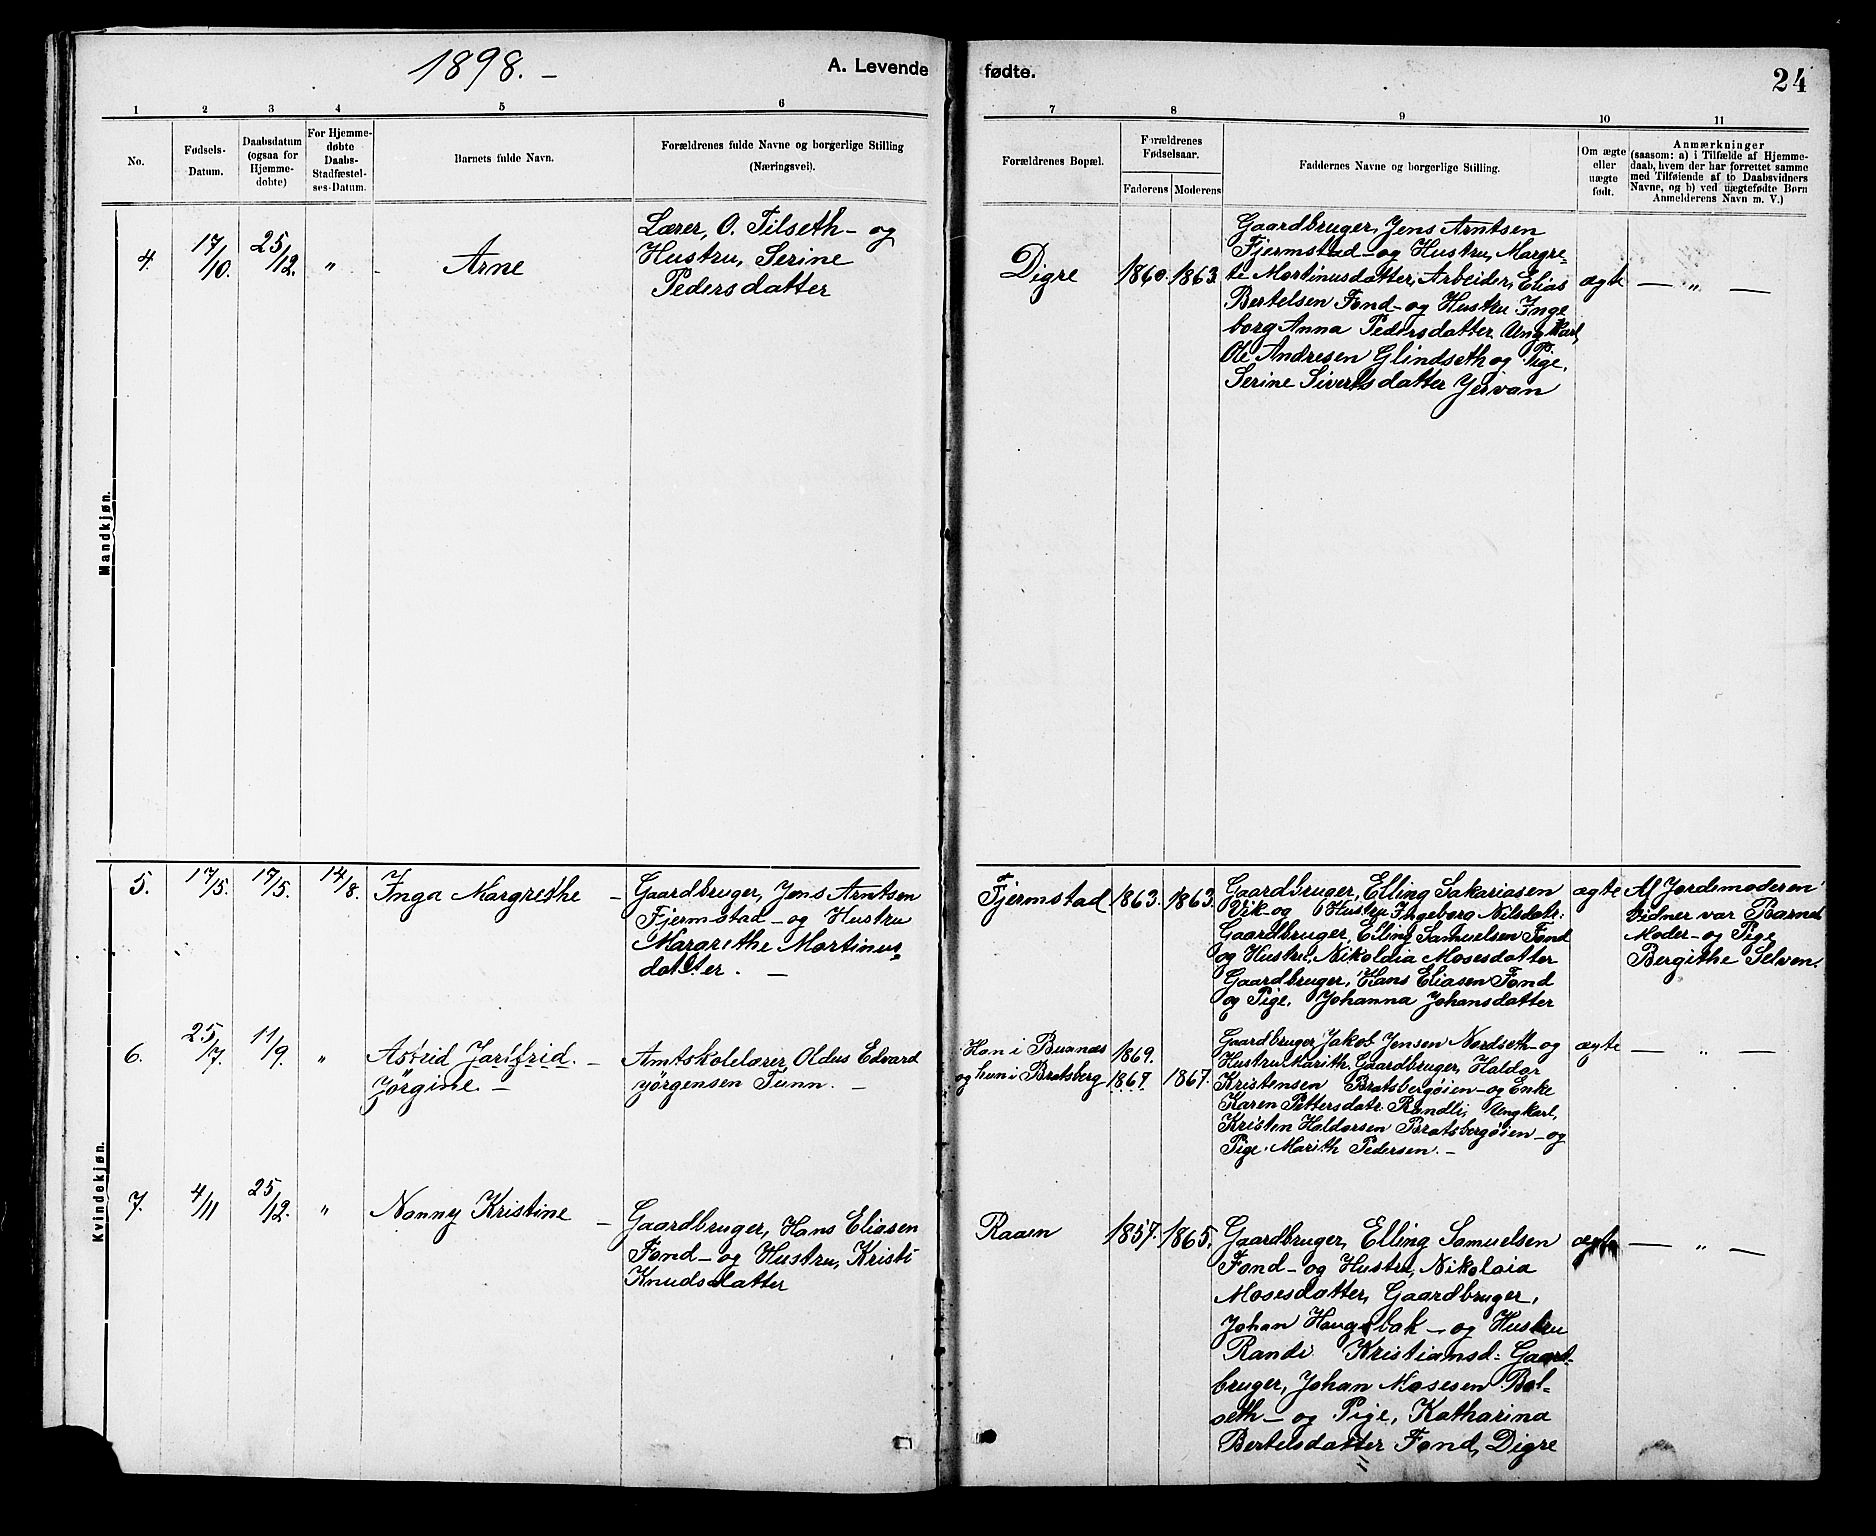 1898. –
A. Levende
1
2
3
4
5
6
No.
Fødsels-
Datum.
Daabsdatum
(ogsaa for
Hjemme-
døbte)
For Hjemme-
døbte
Daabs-
Stadfæstel-
ses-Datum.
Barnets fulde Navn.
Forældrenes fulde Navne og borgerlige Stilling
(Næringsvei).
Mandkjøn.
4.
17/10.
25/12.
"
Arne
Lærer, O. Tilseth – og
Hustru, Serine
Pedersdatter
Kvindekjøn.
5.
17/5.
17/5.
14/8.
Inga Margrethe –
Gaardbruger, Jens Arntsen
Fjermstad – og Hustru
Margrethe Martinus-
datter. –
6.
25/7.
11/9.
"
Astrid Jarlfrid. –
Jörgine –
Amtskolelærer, Oldus Edvard
Jörgensen Tunn. –
7.
4/11
25/12.
"
Nanny Kristine –
Gaardbruger, Hans Eliasen
Fond – og Hustru, Kristi
Knudsdatter
fødte.
24
7
8
9
10
11
Forældrenes Bopæl.
Forældrenes
Fødselsaar.
Faderens
Moderens
Faddernes Navne og borgerlige Stilling.
Om ægte
eller
uægte
født.
Anmærkninger
(saasom: a) i Tilfælde af Hjemme-
daab, hvem der har forrettet samme
med Tilføiende af to Daabsvidners
Navne, og b) ved uægtefødte Børn
Anmelderens Navn m. V.)
Digre
1860.
1863.
Gaardbruger, Jens Arntsen
Fjermstad – og Hustru, Margre-
te Martinusdatter, Arbeider, Elias
Bertelsen Fond – og Hustru Inge
borg Anna Pedersdatter. Ungkarl,
Ole Andresen Glindseth og Pige,
Serine Sivertsdatter Jervan
ægte
— " —
Fjermstad
1863.
1863.
Gaardbruger, Elling Sakariasen
Vik – og Hustru Ingeborg Nilsdatr:
Gaardbruger, Elling Samuelsen Fond
og Hustru, Nikolaia Mosesdatter
Gaardbruger, Hans Eliasen Fond
og Pige, Johanna Johansdatter
ægte
Af Jordemoderen
Vidner var Barnets
Moder – og Pige
Bergithe Selven.
Han i Busnæs
og hun i Bratsberg
1869.
1867.
1867.
Gaardbruger, Jakob Jensen Nordseth – og
Hustru Marith. Gaardbruger, Haldor
Kristensen Bratsbergöien – og Enke
Karen Pettersdatr. Randli, Ungkarl,
Kristen Haldorsen Bratsbergöien – og
Pige. Marith Pedersen. –
ægte
— " —
Raaen
1857.
1865.
Gaardbruger, Elling Samuelsen
Fond – og Hustru, Nikolaia
Mosesdatter, Gaardbruger,
Johan Haugsbak – og Hustru
Randi Kristiansd: Gaard-
bruger, Johan Mosesen Bol-
seth – og Pige, Katharina
Bertelsdatter Fond, Digre
ægte
— " —